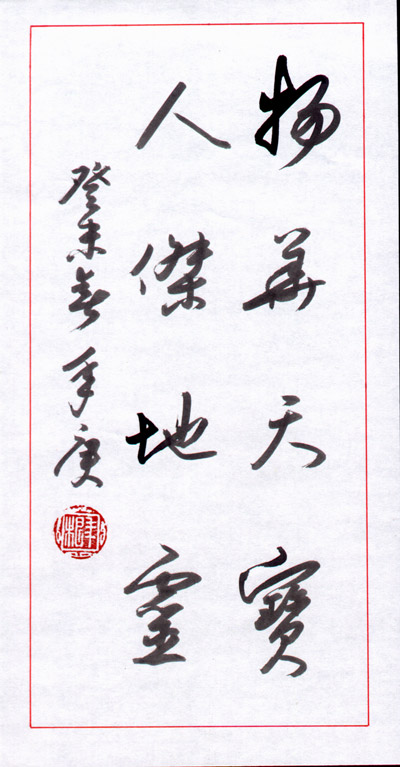 物華天寶
人傑地靈
癸未春 季庚